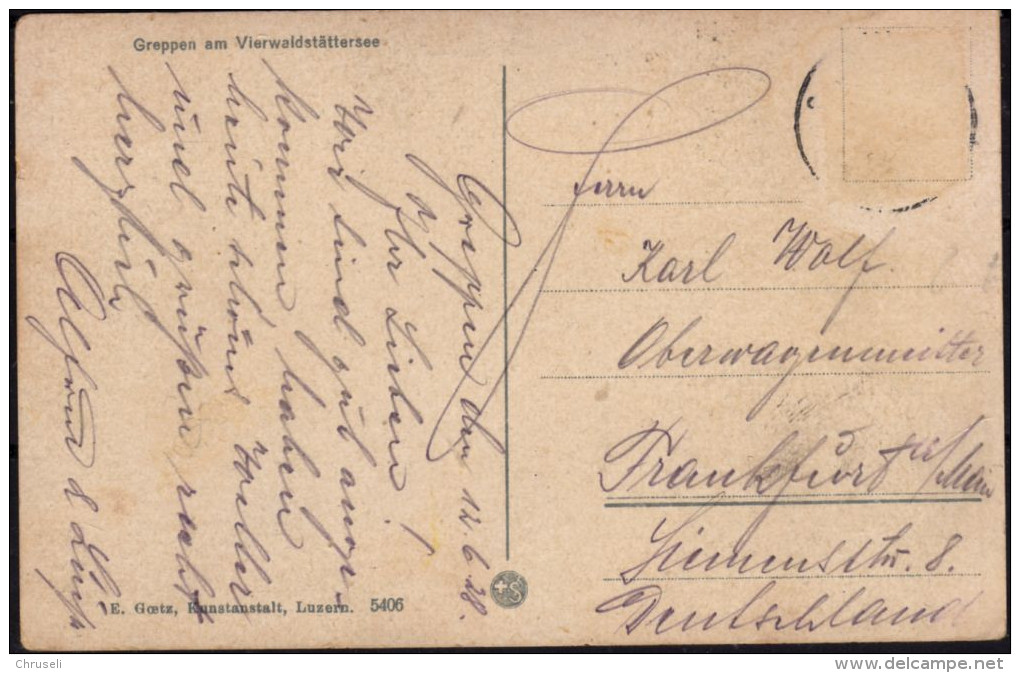 Greppen am Vierwaldstättersee
Greppen den 12.6.28.
Ihr Lieben!
Wir sind gut ange-
kommen, haben
heute schönes Wetter
und grüßen recht
herzlich
Alfred &
Herrn
Karl Wolf.
Oberwagenmeister
Frankfurt a/Main
Siemensstr. 8.
Deutschland
E. Gœtz, Kunstanstalt, Luzern. 5406
Chruseli
www.delcampe.net